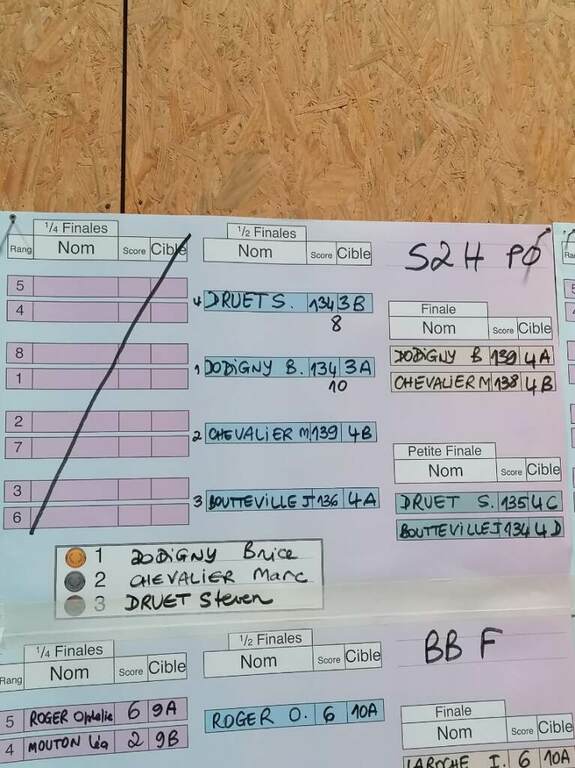 S2H PO
1/4 Finales
Rang Nom Score Cible
5
4
8
1
2
7
3
6
1/2 Finales
Nom Score Cible
4 DRUET S. 134 3B
8
1 DODIGNY B. 134 3A
10
2 CHEVALIER M 139 4B
3 BOUTTEVILLE J 136 4A
Finale
Nom Score Cible
DODIGNY B 139 4A
CHEVALIER M 138 4B
Petite Finale
Nom Score Cible
DRUET S. 135 4C
BOUTTEVILLE J 134 4D
1 DODIGNY Brice
2 CHEVALIER Marc
3 DRUET Steven
BB F
1/4 Finales
Rang Nom Score Cible
5 ROGER Ophelie 6 9A
4 MOUTON Léa 2 9B
1/2 Finales
Nom Score Cible
ROGER O. 6 10A
Finale
Nom Score Cible
LAROCHE I. 6 10A